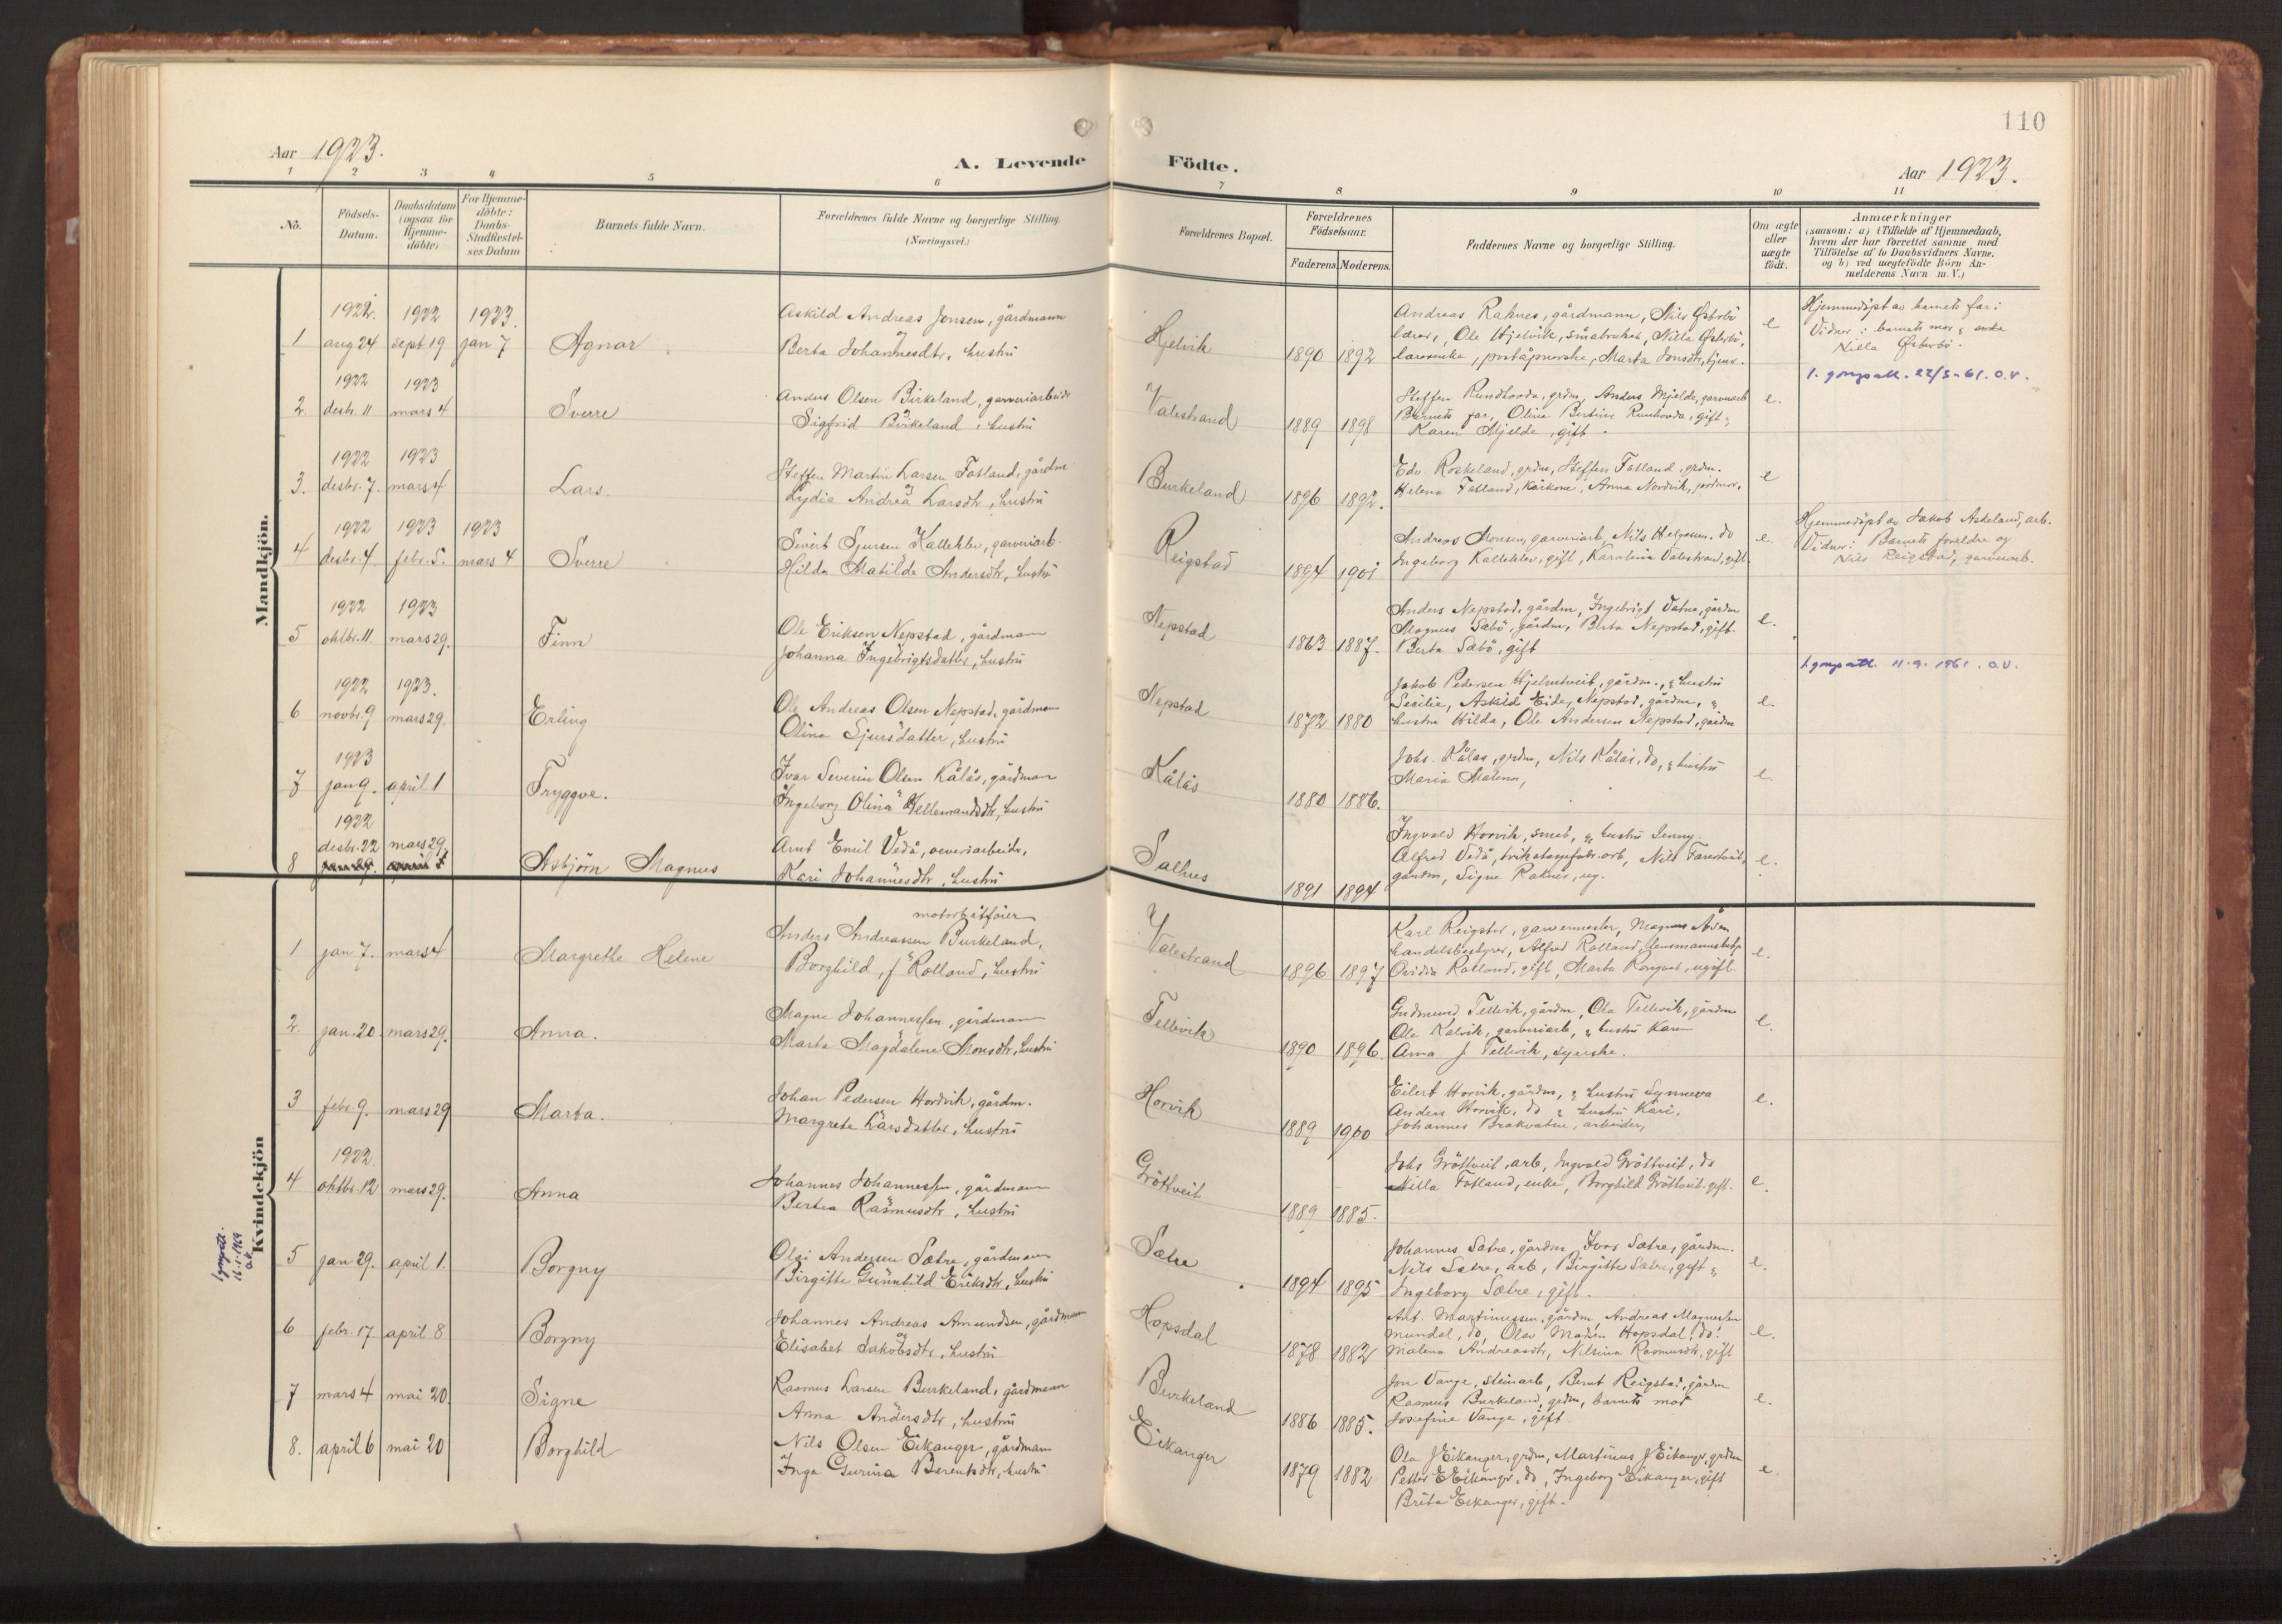 110
Aar 1923.
A. Levende
Födte.
Aar 1923.
1 2 3 4 5 6 7 8 9 10 11
No.
Födsels-
Datum.
Daabsdatum
(ogsaa for
Hjemme-
döbte)
For Hjemme-
döbte:
Daabs-
Stadfæstel-
ses Datum
Barnets fulde Navn.
Forældrenes fulde Navne og borgerlige Stilling.
(Næringsvei.)
Forældrenes Bopæl.
Forældrenes
Födselsaar.
Faderens. Moderens.
Faddernes Navne og borgerlige Stilling.
Om ægte
eller
uægte
födt.
Anmærkninger
(saasom: a) i Tilfælde af Hjemmedaab,
hvem der har forrettet samme med
Tilföielse af to Daabsvidners Navne,
og b) ved uægtefödte Börn An-
melderens Navn m. V.)
Mandkjön.
1922. 1922 1923.
1 aug 24 sept. 19 jan 7 Agnar
Askild Andreas Jonsen, gårdmann
og
Berta Johannesdtr, hustru
Hjelvik
1890 1892
Andreas Raknes, gårdmann, Nils Østerbö
lærer, Ole Hjelvik, småbruker, Nilla Østerbö,
lærerenke, poståpnerske, Marta Jonsdtr, tjen.
e
Hjemmedöpt av barnets far:
Vidner: barnets mor & enke
Nilla Østerbö.
22/3-61. O.V.
1922 1923
2. desbr. 11 mars 4 Sverre
Anders Olsen Birkeland, garveriarbeider
og
Sigfrid Birkeland, hustru
Valestrand
1889 1898
Steffen Rundhovda, grdm, Anders Mjelde, garveriarb
Barnets far, Olina Bertina Rundhovda, gift &
Karen Mjelde, gift.
e.
1922 1923
3. desbr. 7. mars 4 Lars.
Steffen Martin Larsen Fotland, gårdm
og
Lydia Andrea Larsdtr, hustru
Burkeland
1896 1892.
Edv. Roskeland, grdm, Steffen Fotland, grdm.
Helena Fotland, kårkone, Anna Nordvik, jordmor.
e
1922 1923 1923
4 desbr. 4. febr. 5. mars 4 Sverre
Sivert Sjursen Kalleklev, garveriarb.
Hilda Matilde Andersdtr, hustru
Reigstad
1894 1901
Andreas Monsen, garveriarb, Nils Helgesen, do
Ingeborg Kalleklev, gift, Karolina Valestrand, gift
e.
Hjemmedöpt av Jakob Askeland, arb.
Vidner: Barnets foreldre og
Nils Reigstad, garveriarb.
1922 1923
5 oktbr. 11. mars 29. Finn
Ole Eriksen Nepstad, gårdmann
Johanna Ingebrigtsdatter, hustru
Nepstad
1863 1887.
Anders Nepstad, gårdm, Ingebrigt Vatne, gårdm
Magnus Sæbö, gårdm, Berta Nepstad, gift.
Berta Sæbö, gift
e.
11.9.1961. O.V.
1922 1923.
6 novbr. 9 mars 29. Erling
Ole Andreas Olsen Nepstad, gårdmann
Olina Sjursdatter, hustru
Nepstad
1872 1880
Jakob Pedersen Hjelmtveit, gårdm., & hustru
Secilie, Askild Eide, Nepstad, gårdm, &
hustru Hilda, Ole Andersen Nepstad, gårdm
e.
1923
7 jan 9. april 1 Tryggve.
Ivar Severin Olsen Kålås, gårdmann
Ingeborg Olina Hellemandsdtr, hustru
Kålås
1880 1886.
Johs. Kålås, grdm, Nils Kålås, do, & hustru
Maria Malena,
e.
1922
desbr. 22 mars 29.
8 Asbjörn Magnus
Arnt Emil Vedå, veveriarbeider,
Kari Johannesdtr, hustru
Salhus
1891 1894
Ingvald Horvik, smed, & hustru Jenny.
Alfred Vedå, trikotagefabr.arb, Nils Farestveit,
gårdm, Signe Raknes, ug.
e.
Kvindekjön
motorbåtförer
1 jan 7. mars 4 Margrethe Helene
Anders Andreassen Burkeland,
Borghild, f Rolland, hustru
Valestrand
1896 1897
Karl Reigstad, garvermester, Magnus
handelsbestyrer, Alfred Rolland, lensmannsbetj.
Ovidia Rolland, gift, Marta , ugift.
e.
2. jan. 20 mars 29. Anna.
Magne Johannessen, gårdmann
Marta Magdalene Monsdtr, hustru
Tellevik
1890 1896.
Gudmund Tellevik, gårdm, Ole Tellevik, gårdm
Ole Kalvik, garveriarb, & hustru Karen
Anna J Tellevik, syerske.
e.
3 febr. 9. mars 29 Marta.
Johan Pedersen Hordvik, gårdm.
Margreta Larsdatter, hustru
Horvik
1889 1900
Eilert Horvik, gårdm, & hustru Synneva
Anders Horvik, do & hustru Kari,
Johannes Brakvatne, arbeider,
e.
1922
4 oktbr. 12 mars 29. Anna
Johannes Johannessen, gårdmann
Bertea Rasmusdtr, hustru
Gröttveit
1889 1885.
Johs Gröttveit, arb, Ingvald Gröttveit, do
Nilla Fotland, enke, Borghild Gröttveit, gift.
e.
16-1-1969
5 jan 29. april 1. Borgny
Olai Andersen Sætre, gårdmann
Birgitte Gunnhild Eriksdtr, hustru
Sætre
1894 1895
Johannes Sætre, gårdm, Ivar Sætre, gårdm.
Nils Sætre, arb, Birgitte Sætre, gift &
Ingeborg Sætre, gift.
e.
6 febr. 17 april 8 Borgny
Johannes Andreas Amundsen, gårdmann
og
Elisabet Jakobsdtr, hustru
Hopsdal
1878 1882
Ant. Martinussen, gårdm, Andreas Magnessen
Mundal, do, Olav Madsen Hopsdal, do.
Malena Andreasdtr, Nilsina Rasmusdtr, gift
e.
7 mars 4 mai 20. Signe
Rasmus Larsen Burkeland, gårdmann
Anna Andersdtr, hustru
Burkeland
1886 1885.
Jon Vange, steinarb, Bernt Reigstad, gårdm
Rasmus Burkeland, grdm, barnets mor
Josefine Vange, gift.
e.
8. april 6 mai 20 Borghild
Nils Olsen Eikanger, gårdmann
Inga Gurina Berentsdtr, hustru
Eikanger
1879 1882
Ole J Eikanger, grdm, Martinus J Eikanger, grdm
Petter E Eikanger, do, Ingeborg Eikanger, gift
Brita Eikanger, gift.
e.